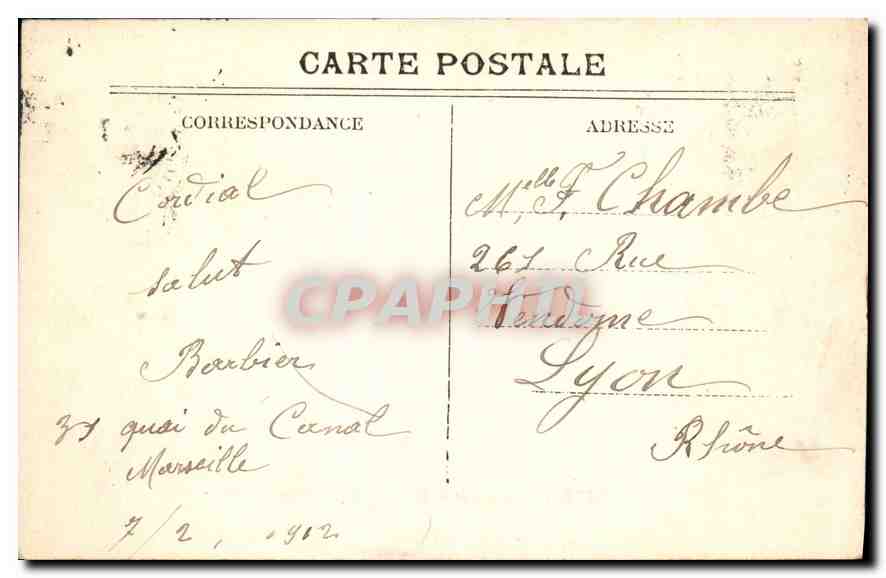 CARTE POSTALE
CORRESPONDANCE
Cordial
salut
Barbier
31 quai du Canal
Marseille
7/2, 1912
ADRESSE
Melle F. Chambe
261 Rue
Vendome
Lyon
Rhône
CPAPHIL